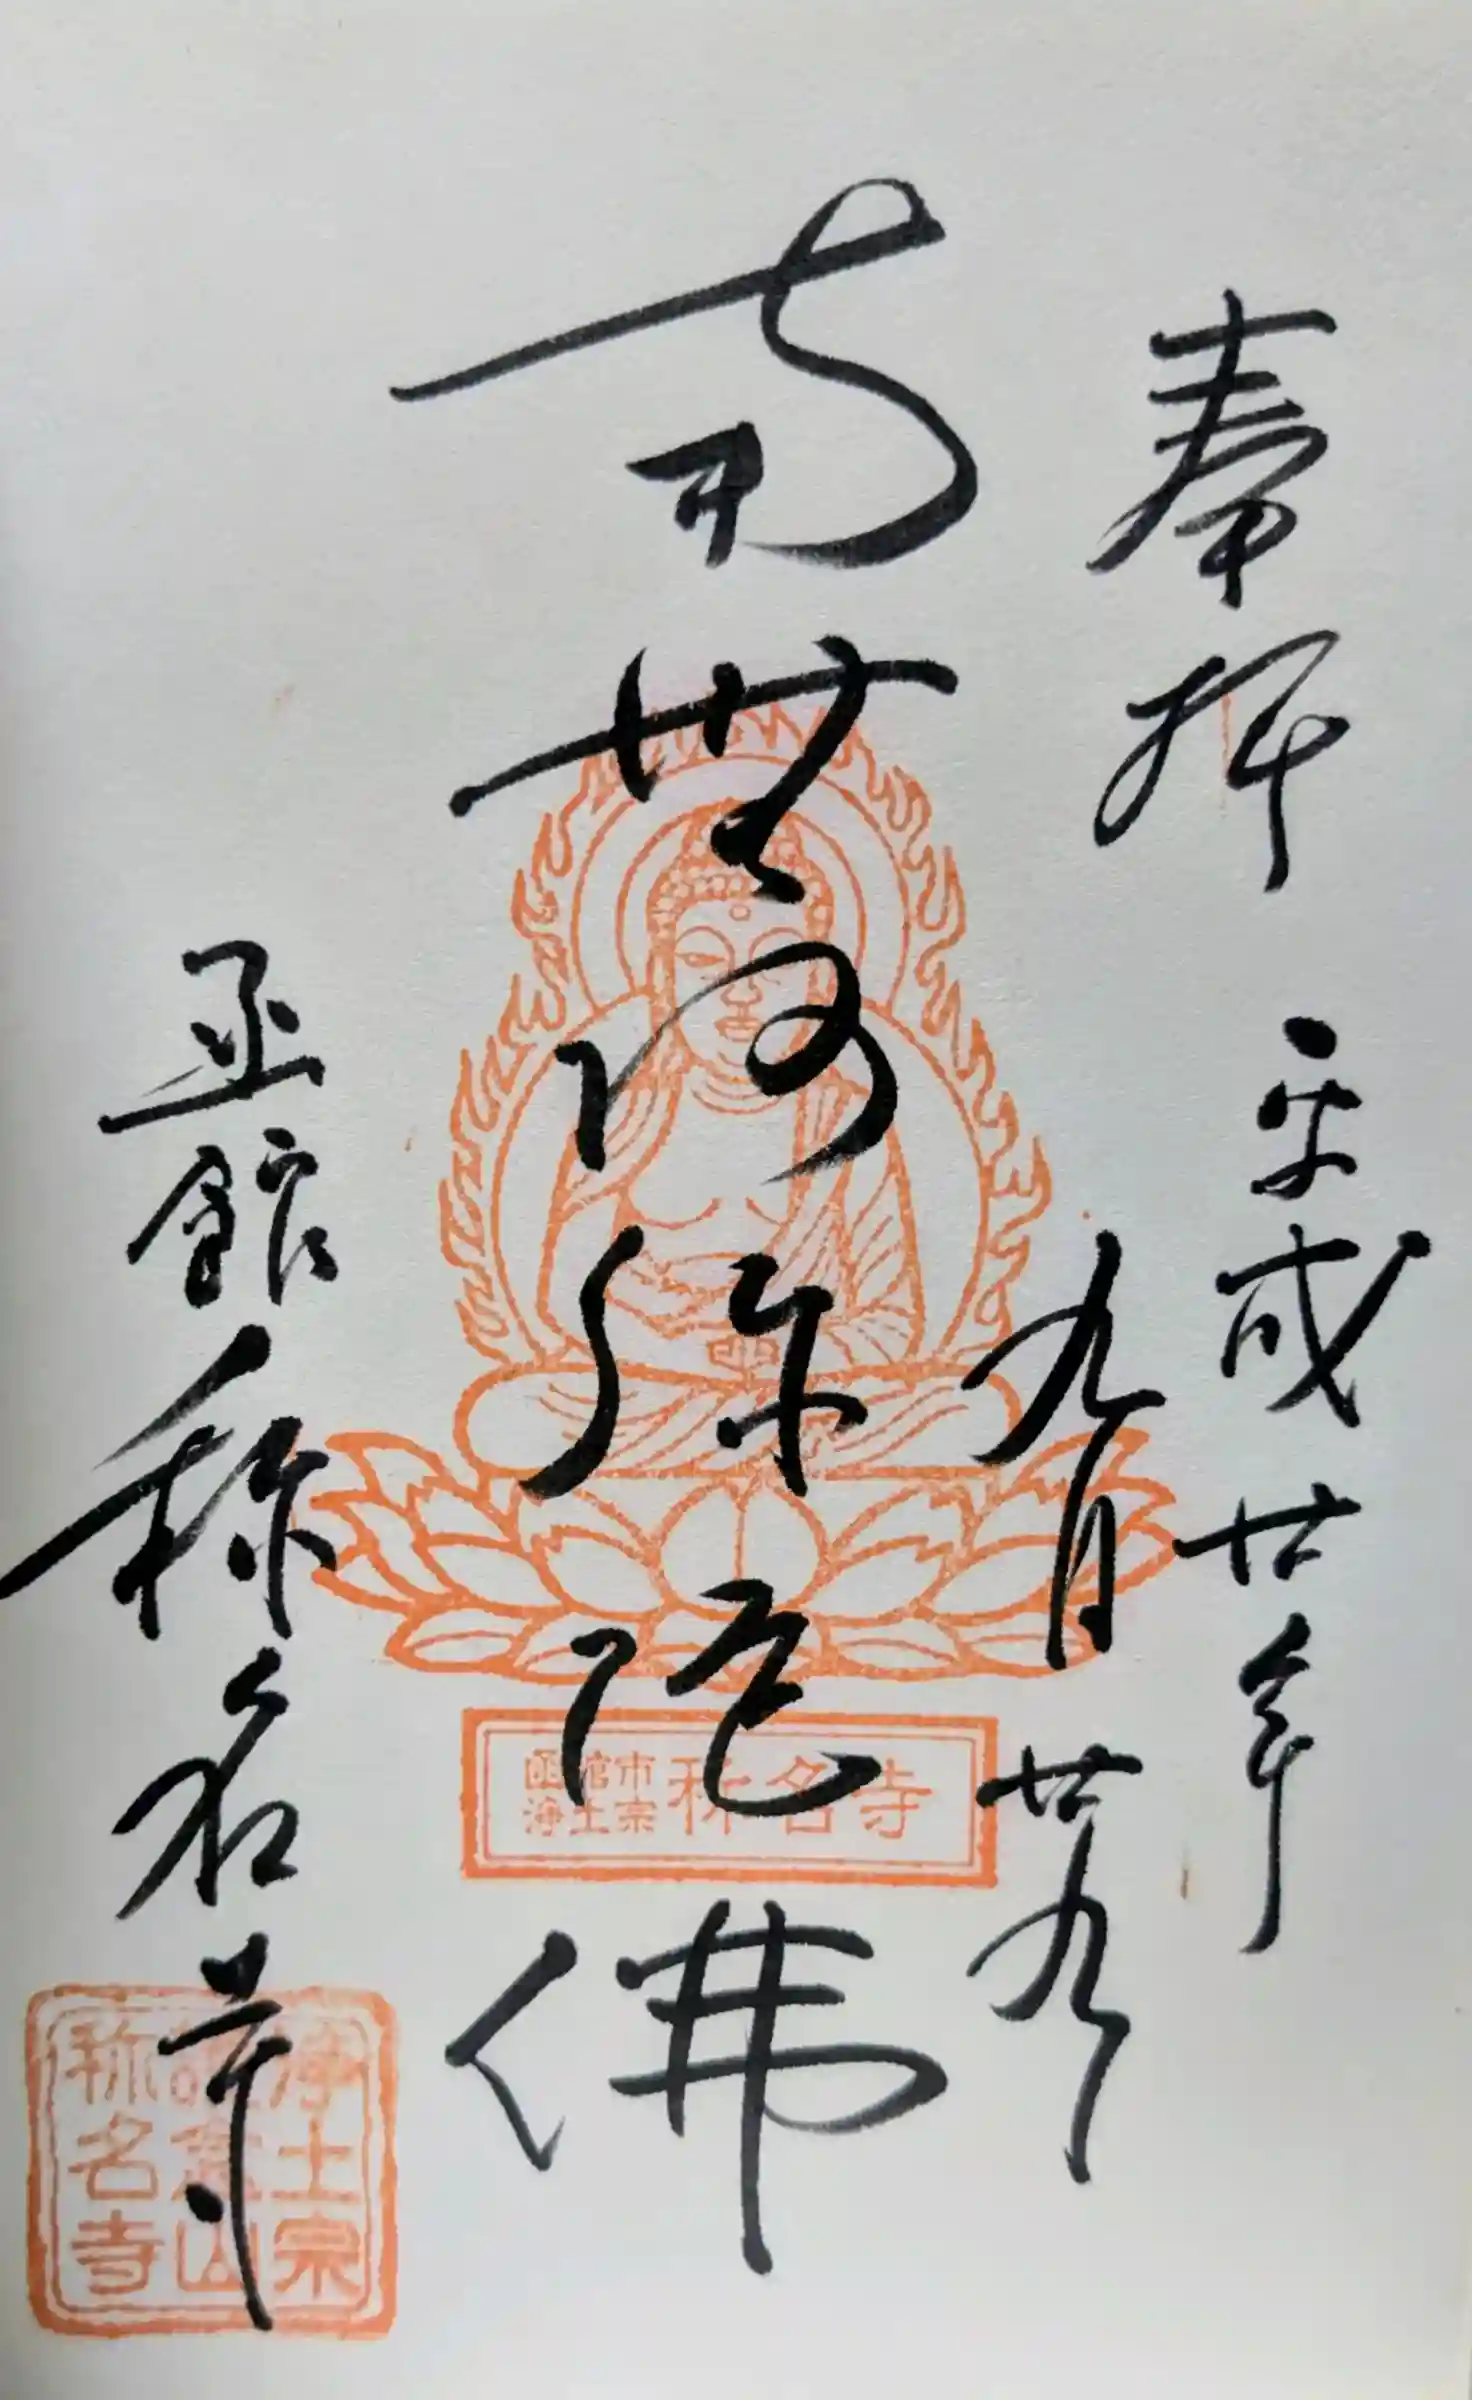 奉拝
平成廿年
九月廿九
南無阿弥陀佛
函館市
浄土宗
称名寺
函館称名寺
浄土宗
山
称名寺